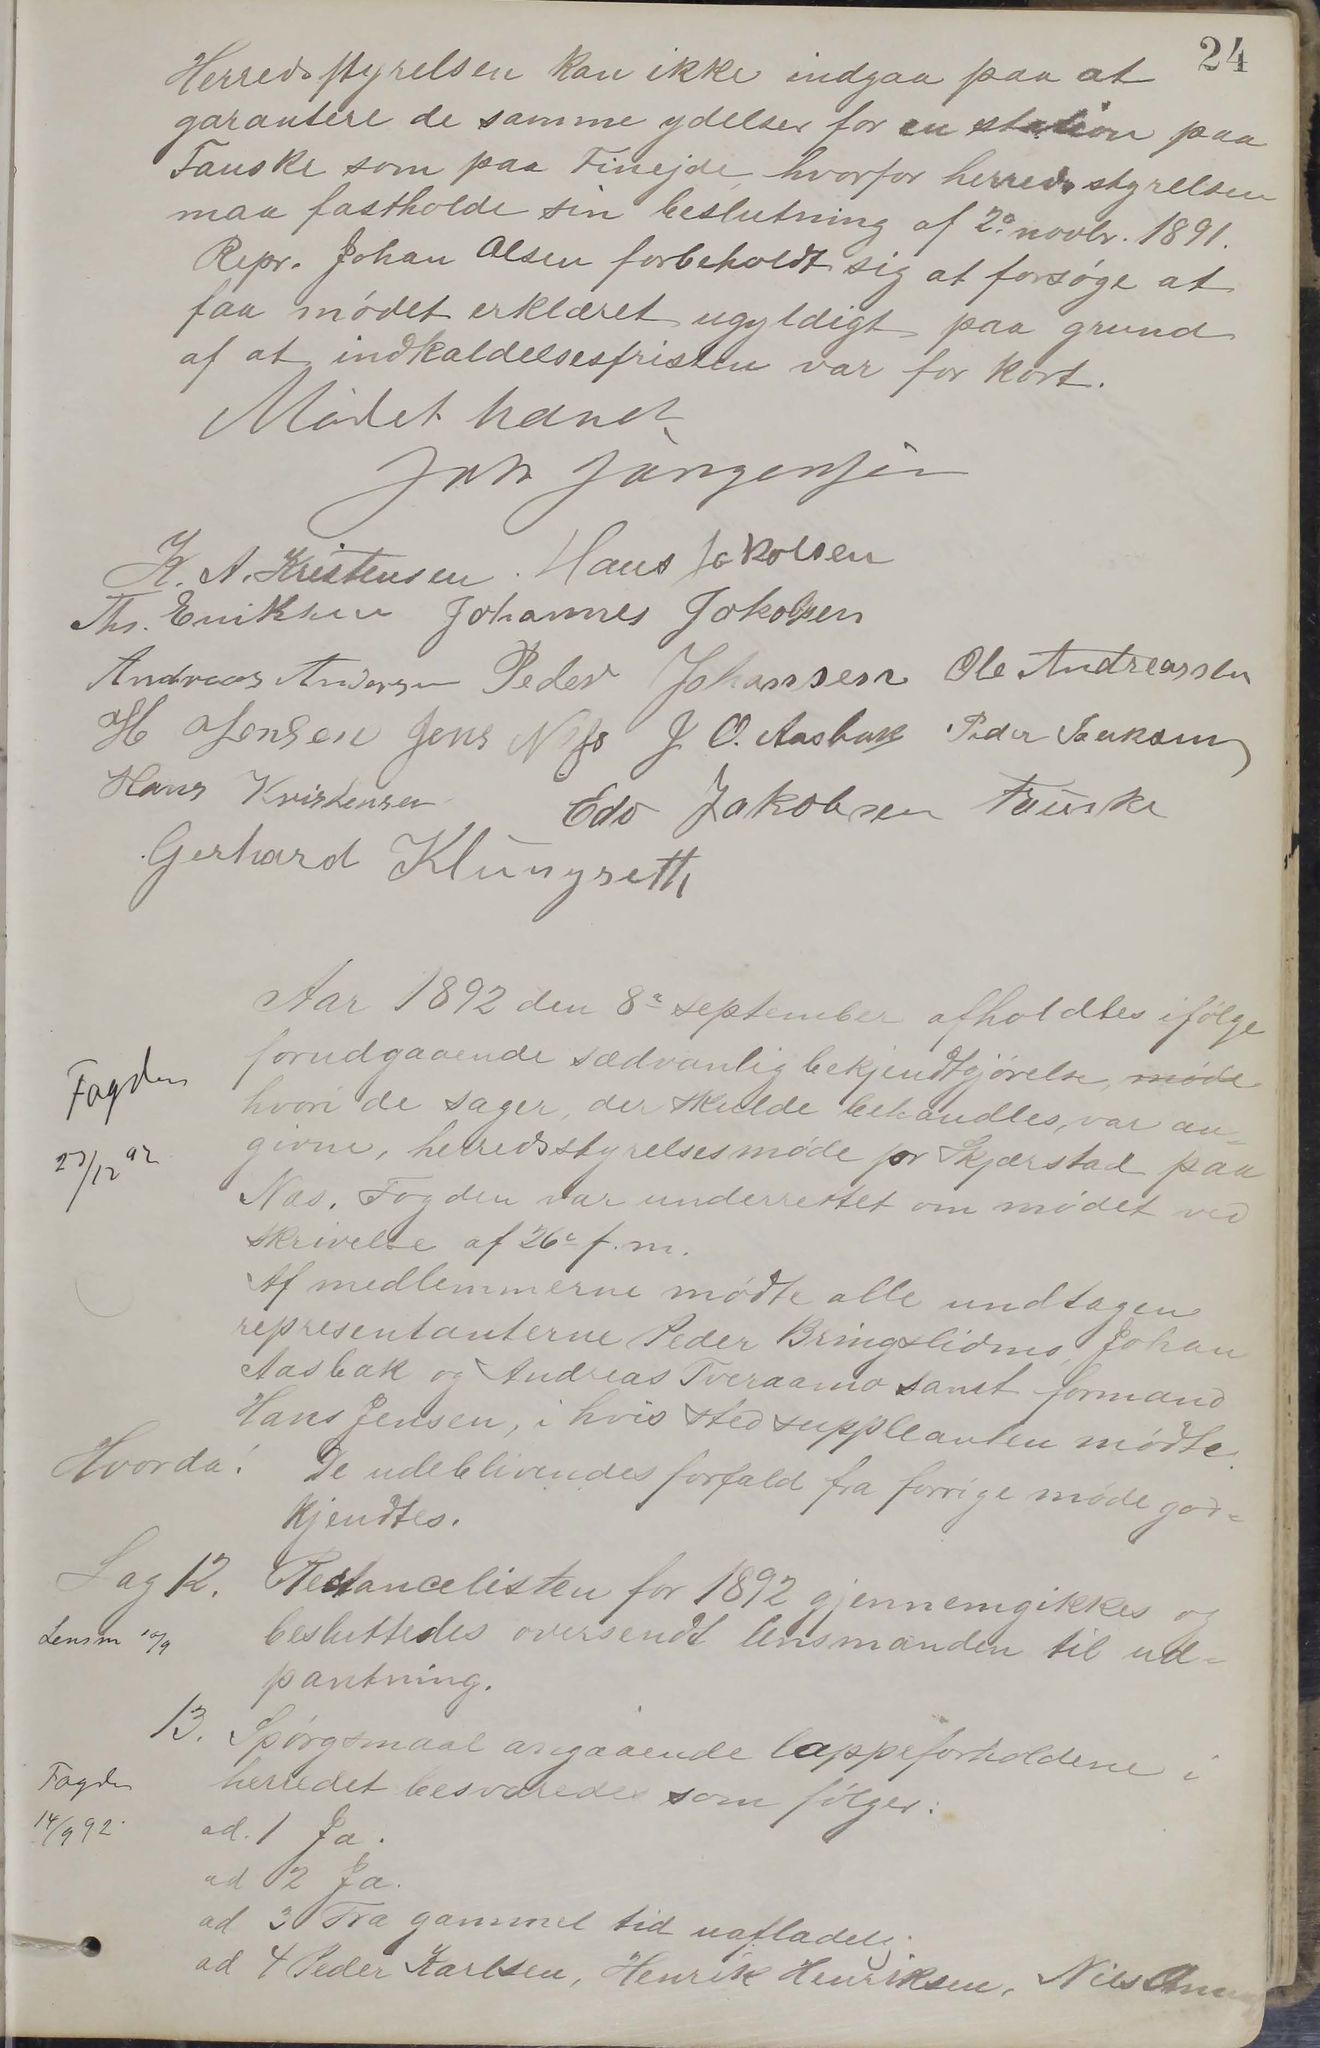 24
Herredsstyrelsen kan ikke indgaa paa at
garantere de samme ydelser for en station paa
Fauske som paa Finejde, hvorfor herredsstyrelsen
maa fastholde sin beslutning af 2den novbr. 1891.
Repr. Johan Olsen forbeholdt sig at forsøge at
faa mødet erklæret ugyldigt paa grund
af at indkaldelsesfristen var for kort.
Mødet hævet
Joh Jørgensen
K. A. Kristensen. Hans Jakobsen
Ths. Eriksen Johannes Jakobsen
Andreas Andersen Peder Johansen Ole Andreassen
H Jensen Jens J. O. Aasbak Peder
Hans Kristensen Edv Jakobsen Fauske
Gerhard Klungseth
Aar 1892 den 8de september afholdtes ifølge
forudgaaende sædvanlig bekjendtgjørelse, møde
hvori de sager, der skulde behandles, var an-
givne, herredsstyrelsesmøde for Skjærstad paa
Næs. Fogden var underrettet om mødet ved
skrivelse af 26de f. m.
Fogden
23/12 92
Af medlemmerne mødte alle undtagen
repræsentanterne Peder Bringslidmo, Johan
Aasbak og Andreas Tveraamo samt formand
Hans Jensen, i hvis sted suppleanten mødte.
Hvorda: De udeblivendes forfald fra forrige møde god-
kjendtes.
Sag 12. Restancelisten for 1892 gjennemgikkes og
besluttedes oversendt lensmanden til ud-
pantning.
Lensm 10/9
13. Spørgsmaal angaaende lappeforholdene i
herredet besvaredes som følger:
Fogden
14/9 92.
ad. 1 Ja.
ad 2 Ja.
ad 3 Fra gammel tid uafladelig.
ad 4 Peder Karlsen, Henrik Henriksen, Nils